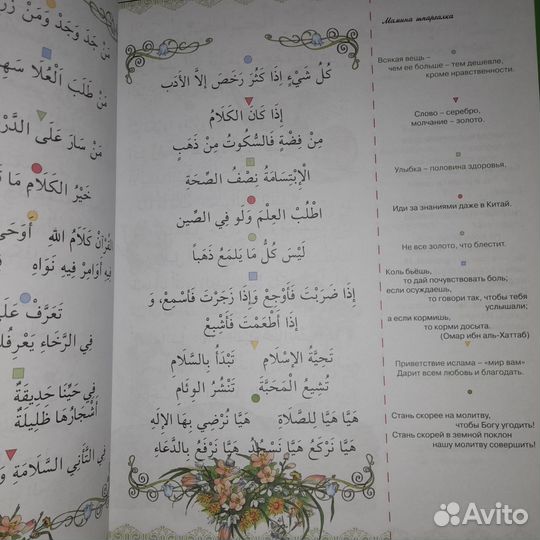 كُلُّ شَيْءٍ إِذَا كَثُرَ رَخَصَ إِلاَّ الأَدَب
إِذَا كَانَ الْكَلَامُ
مِنْ فِضَّةٍ فَالسُّكُوتُ مِنْ ذَهَبٍ
الْإِبْتِسَامَةُ نِصْفُ الصِّحَةِ
اطْلُبْ الْعِلْمَ وَلَو فِي الصِّين
لَيْسَ كُلُّ مَا يَلْمَعُ ذَهَباً
إِذَا ضَرَبْتَ فَأَوْجِعْ وَإِذَا زَجَرْتَ فَأَسْمِعْ، وَ
إِذَا أَطْعَمْتَ فَأَشْبِعْ
تَحِيَّةُ الْإِسْلَامِ تَبْدَأُ بِالسَّلَامِ
تُشِيعُ الْمَحَبَّةَ تَنْشُرُ الْوِئَامِ
هَيَّا هَيَّا لِلصَّلَاةِ هَيَّا نُرْضِي بِهَا الإِلَهِ
هَيَّا نَرْكَعُ هَيَّا نَسْجُدُ هَيَّا نَرْفَعُ بِالدُّعَاءِ
مَنْ جَدَ وَجَدَ وَمَنْ
مَنْ طَلَبَ الْعُلَا
مَنْ سَارَ عَلَى
خَيْرُ الْكَلَامِ مَا
الْقُرْآنُ كَلَامُ اللهِ أَوْحَى
فِيهِ أَوَامِرْ فِيهِ نَوَاهِ
تَعَرَّفْ
فِي الرَّخَاءِ
فِي حَيِّنَا حَدِيقَةٌ
أَشْجَارُهَا ظَلِيلَةٌ
فِي التَّأَنِّي السَّلَامَةُ وَ
Мамина шпаргалка
Всякая вещь –
чем ее больше – тем дешевле,
кроме нравственности.
Слово – серебро,
молчание – золото.
Улыбка – половина здоровья,
Иди за знаниями даже в Китай.
Не все золото, что блестит.
Коль бьёшь,
то дай почувствовать боль;
если осуждаешь,
то говори так, чтобы тебя
услышали;
а если кормишь,
то корми досыта.
(Омар ибн аль-Хаттаб)
Приветствие ислама – «мир вам»
Дарит всем любовь и благодать.
Стань скорее на молитву,
чтобы Богу угодить!
Стань скорей в земной поклон
нашу молитву совершить!
Avito